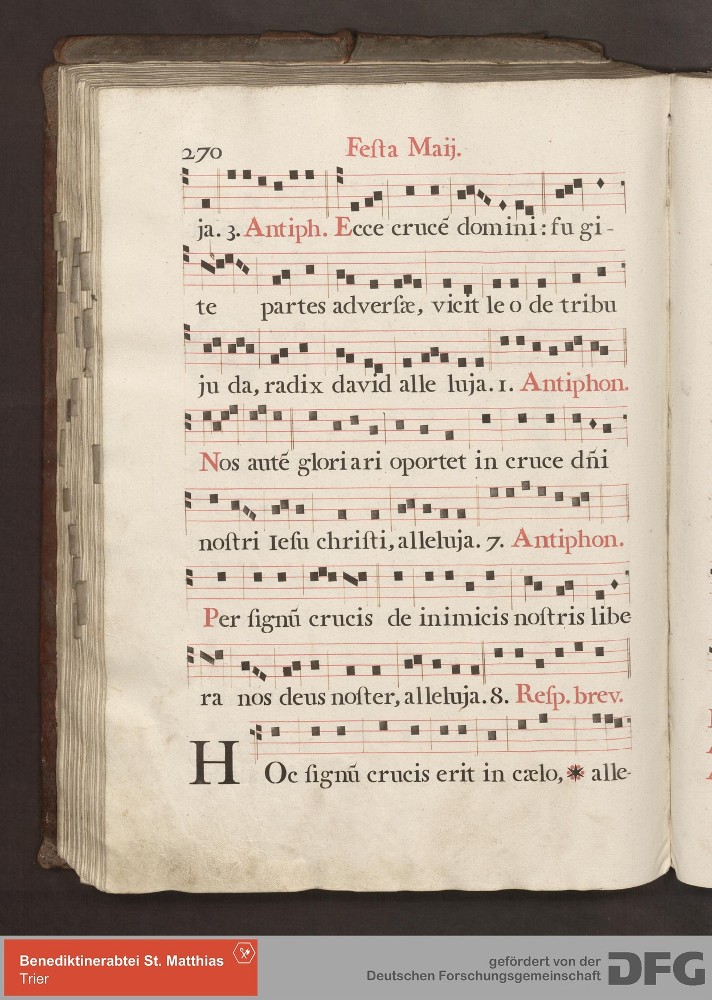 270
Feſta Maij.
ja. 3. Antiph. Ecce crucē domini: fu gi-
te partes adverſæ, vicit le o de tribu
ju da, radix david alle luja. 1. Antiphon.
Nos autē gloriari oportet in cruce dñi
noſtri Ieſu chriſti, alleluja. 7. Antiphon.
Per ſignū crucis de inimicis noſtris libe
ra nos deus noſter, alleluja. 8. Reſp. brev.
HOc ſignū crucis erit in cælo, ✷ alle-
Benediktinerabtei St. Matthias
Trier
gefördert von der
Deutschen Forschungsgemeinschaft
DFG